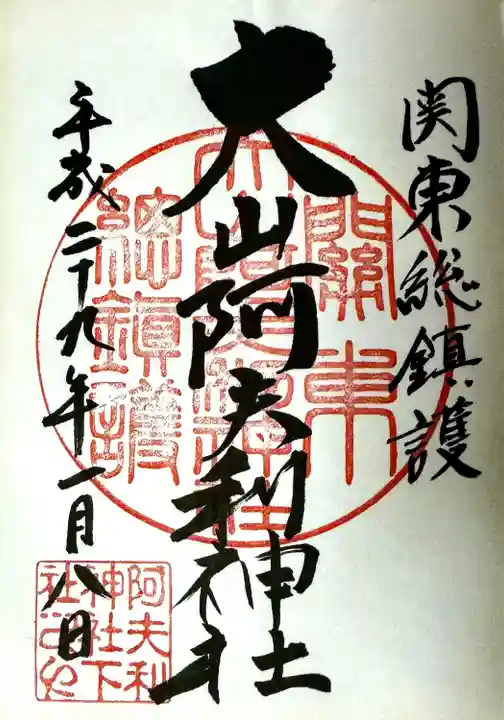 関東総鎮護
大山阿夫利神社
平成二十九年一月八日
關東
大山阿夫利神社
總鎮護
阿夫利
神社下
社之印